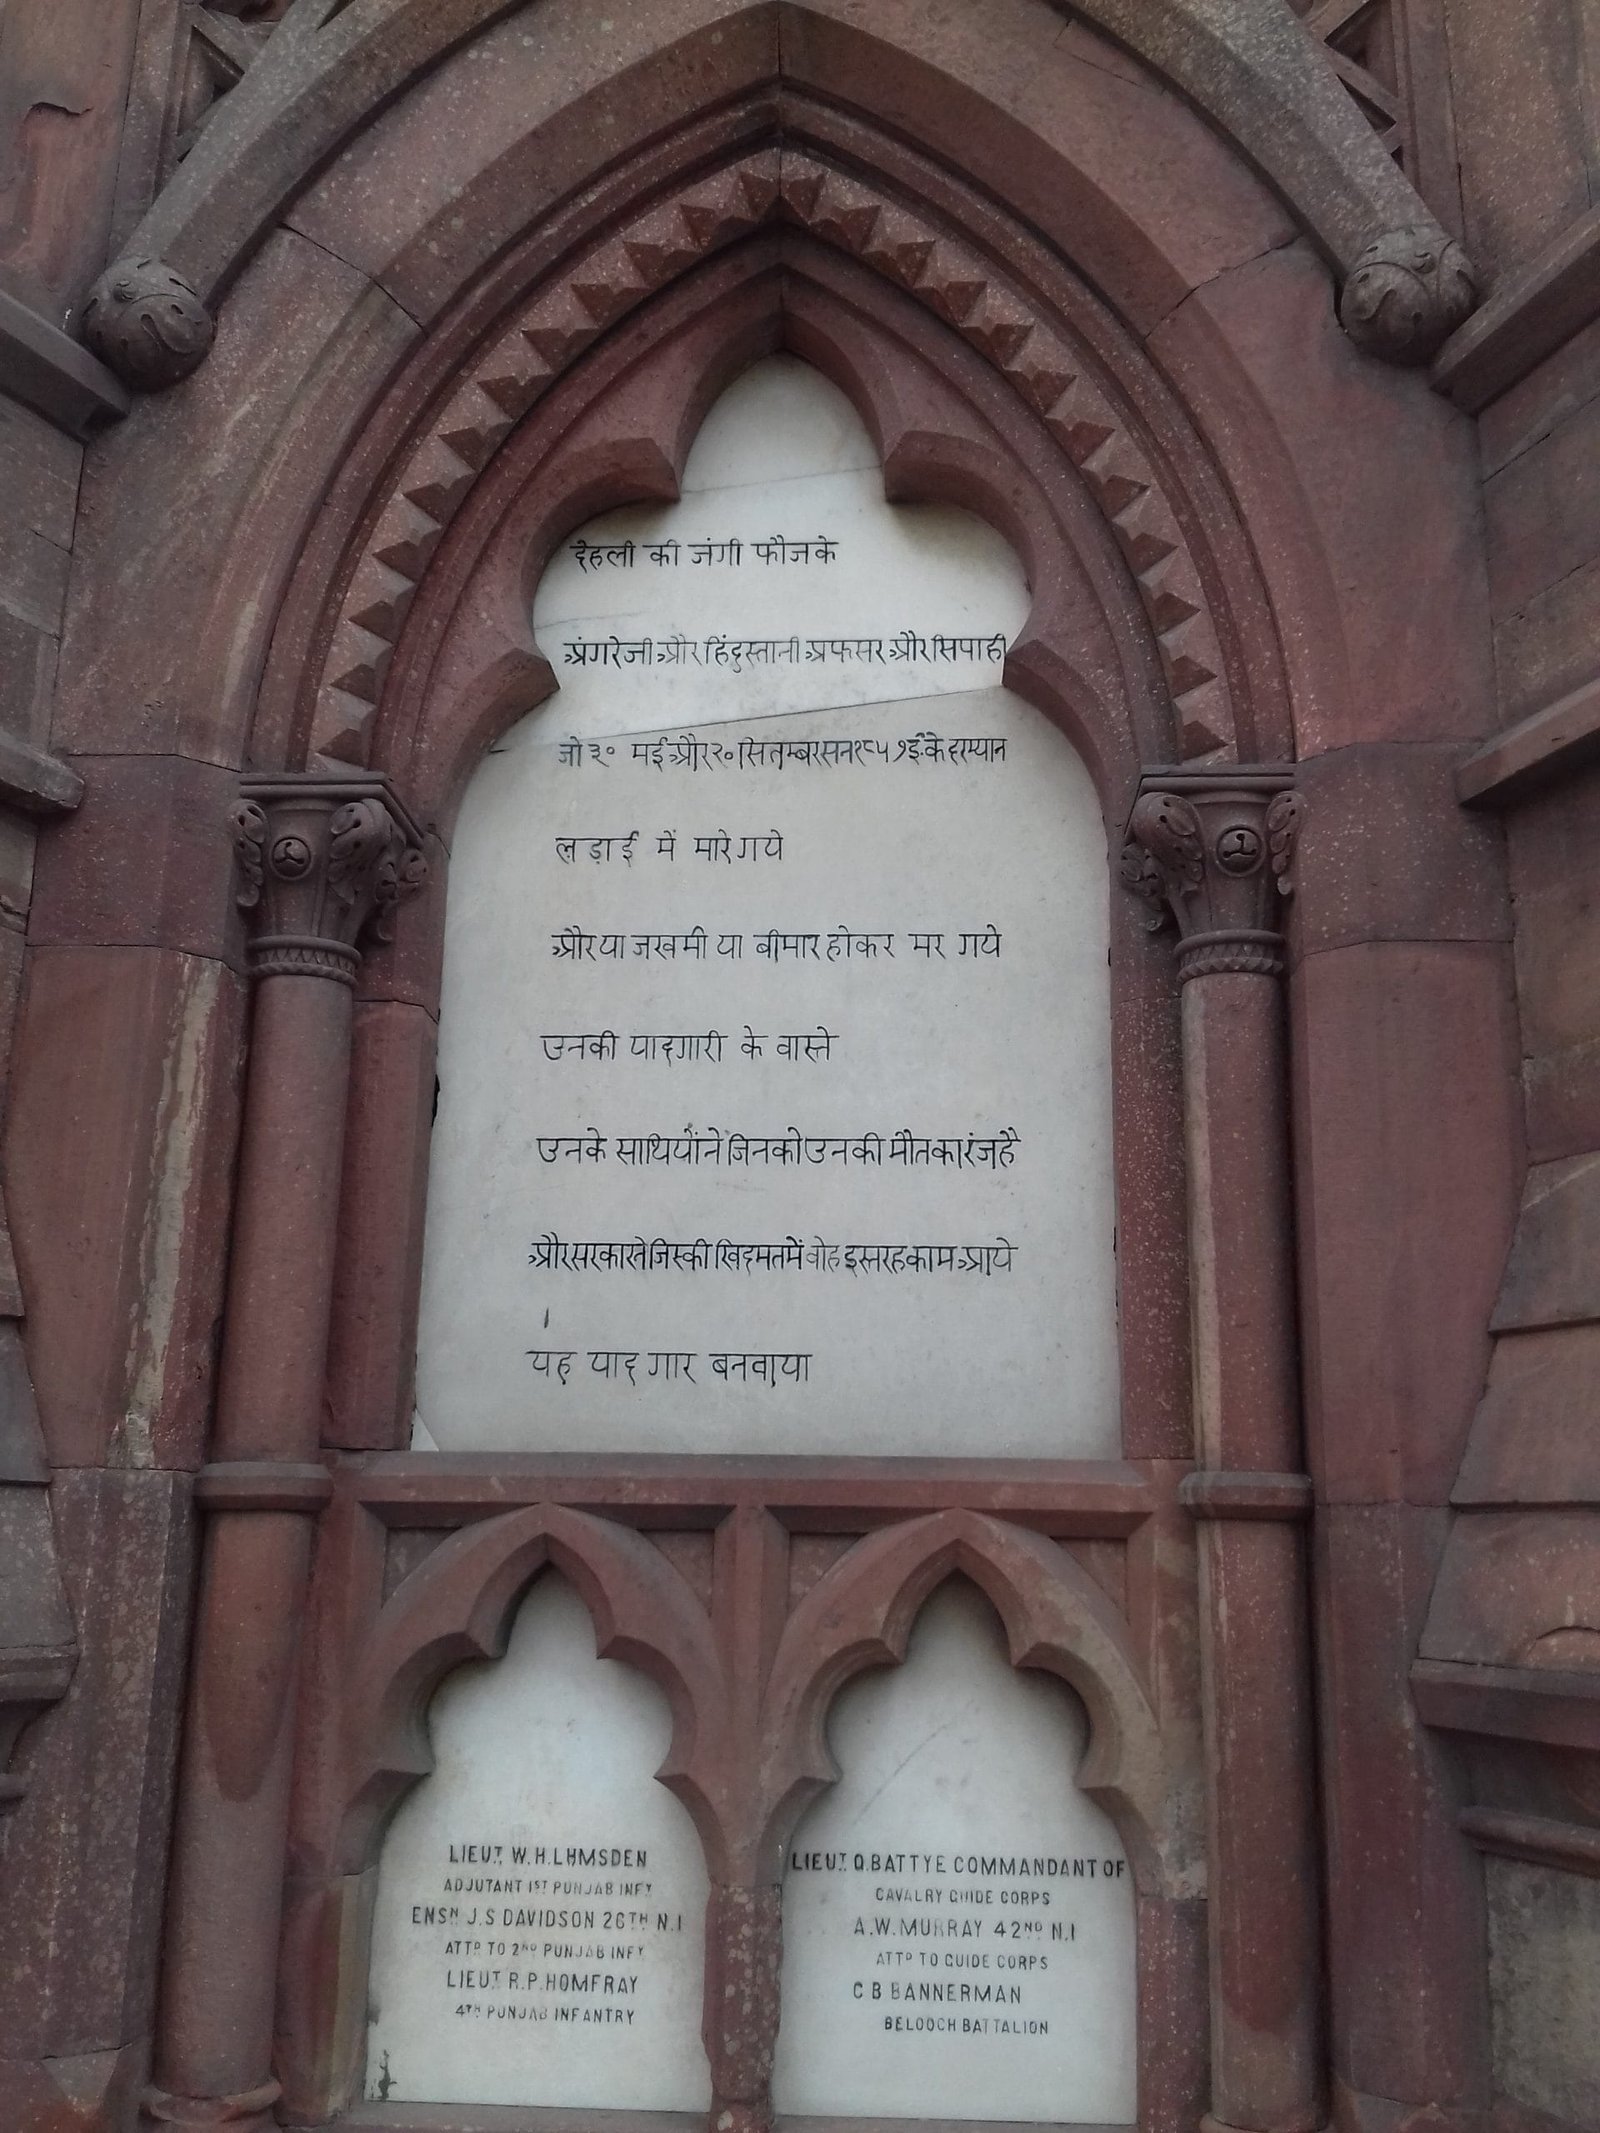 देहली की जंगी फौजके
अंगरेजी और हिंदुस्तानी अफसर और सिपाही
जो ३० मई और २० सितम्बर सन १८५७ ई॰ के दरम्यान
लड़ाई में मारे गये
और या जखमी या बीमार होकर मर गये
उनकी यादगारी के वास्ते
उनके साथियोंने जिनको उनकी मौत का रंज है
और सरकारने जिस्की खिदमतमें वोह इस्तरह काम आये
।
यह यादगार बनवाया
LIEUT. W.H.LHMSDEN
ADJUTANT 1ST PUNJAB INFY
ENSN J.S DAVIDSON 26TH N.I
ATTD TO 2ND PUNJAB INFY
LIEUT R.P.HOMFRAY
4TH PUNJAB INFANTRY
LIEUT Q.BATTYE COMMANDANT OF
CAVALRY GUIDE CORPS
A.W.MURRAY 42ND N.I
ATTD TO GUIDE CORPS
C B BANNERMAN
BELOOCH BATTALION